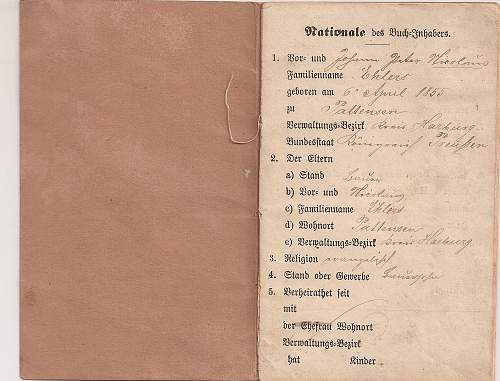 Nationale des Buch-Inhabers.
1. Vor- und Johann Peter Nicolaus
Familienname Ehlers
geboren am 6 April 1855
zu Pattensen
Verwaltungs-Bezirk Kreis Harburg
Bundesstaat Königreich Preußen
2. Der Eltern
a) Stand Bauer
b) Vor- und Nicolaus
c) Familienname Ehlers
d) Wohnort Pattensen
e) Verwaltungs-Bezirk Kreis Harburg
3. Religion evangelisch
4. Stand oder Gewerbe
5. Verheirathet seit
mit
der Ehefrau Wohnort
Verwaltungs-Bezirk
hat Kinder.